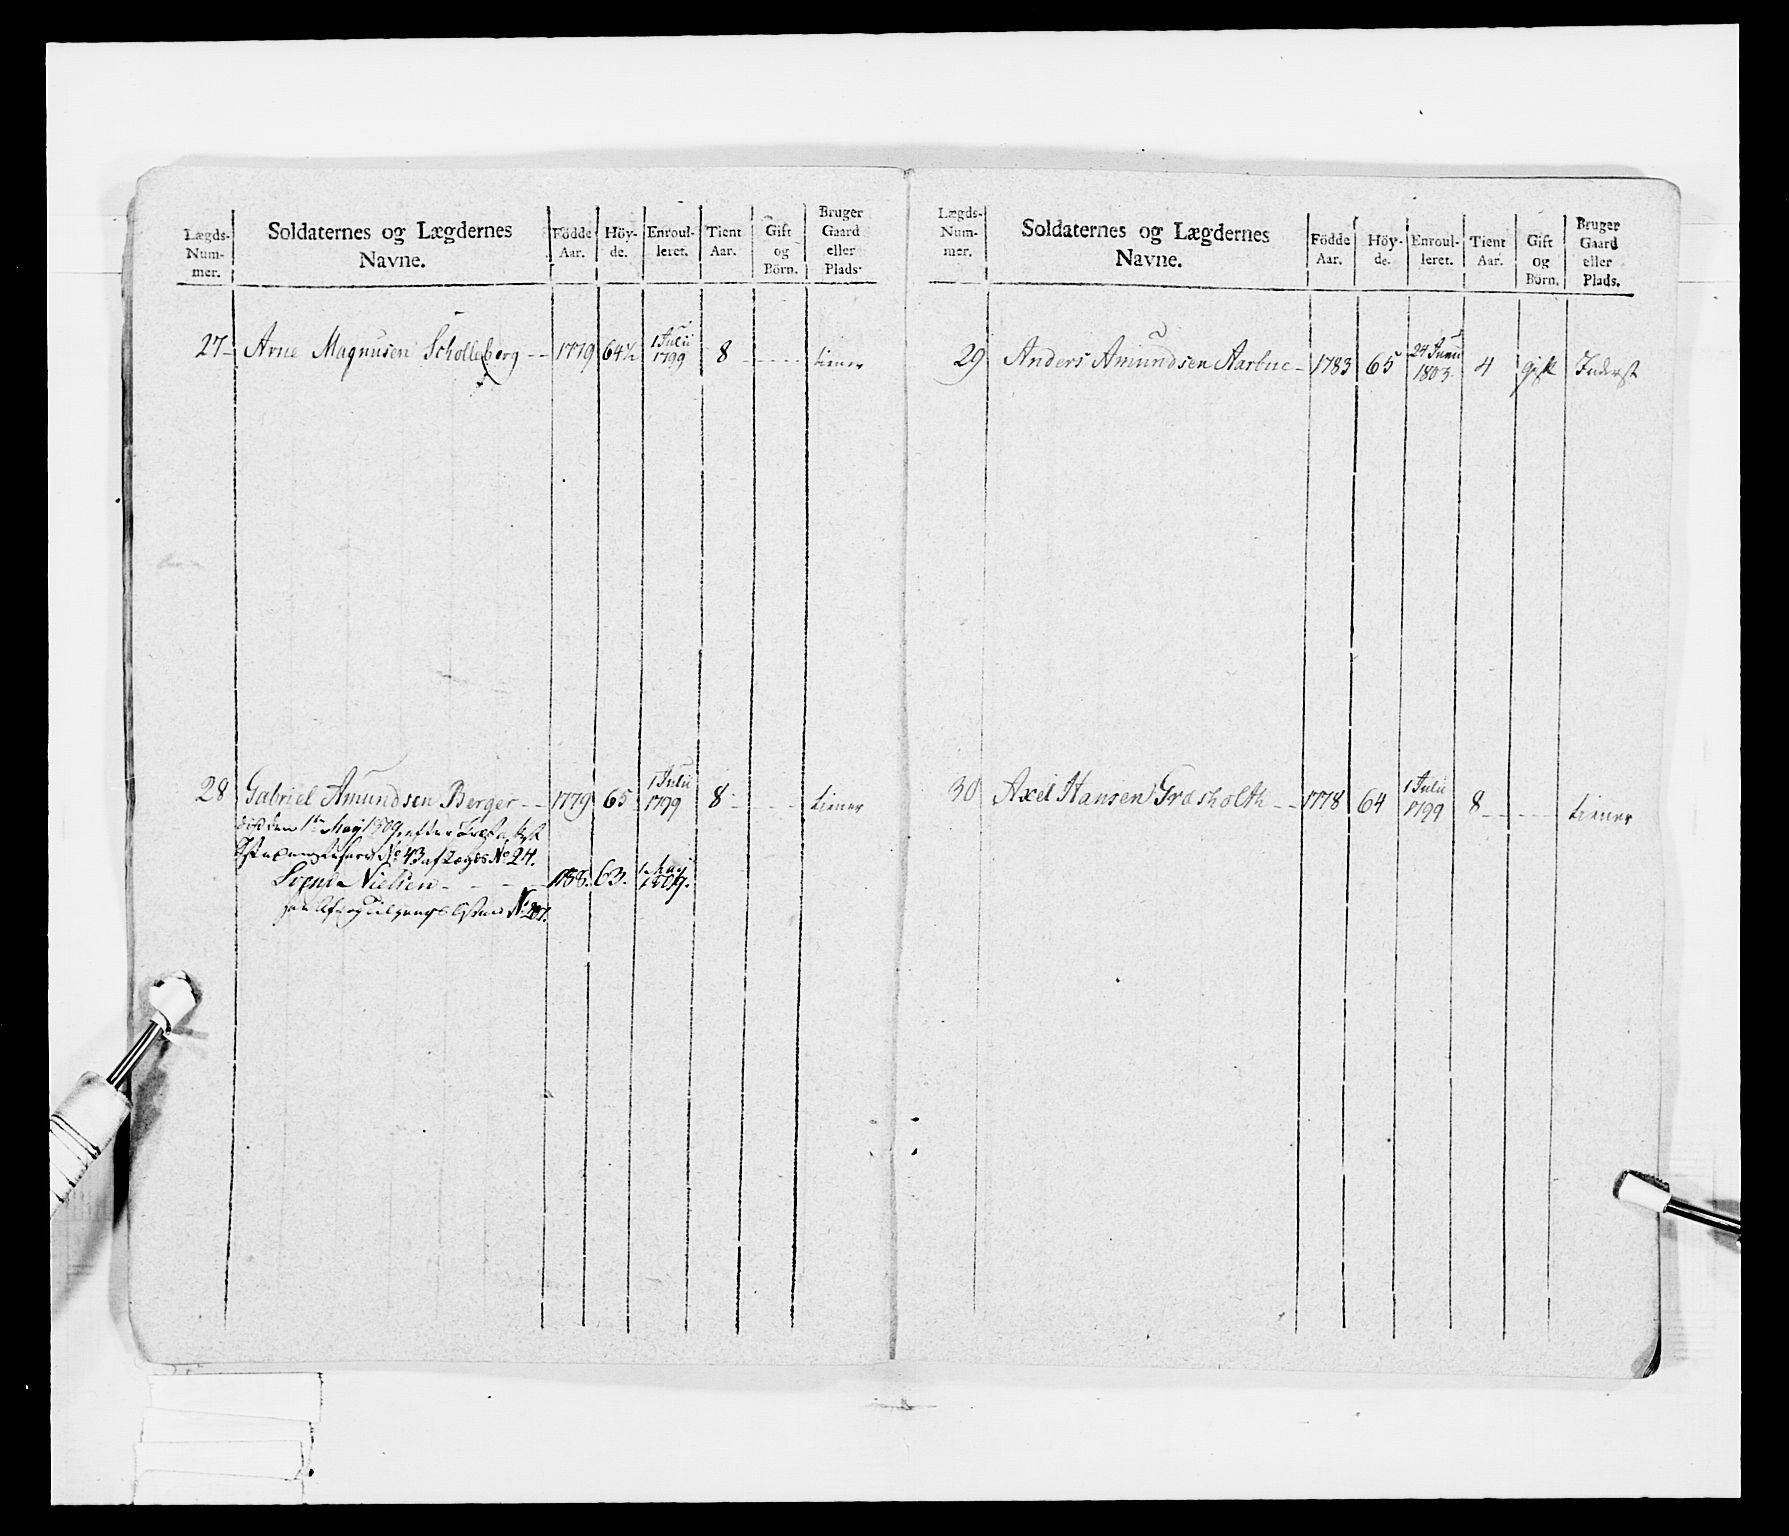 Lægds-Num-mer. Soldaternes og Lægdernes Navne. Födde Aar. Höy-de. Enroul-leret. Tient Aar. Gift og Börn. Bruger Gaard eller Plads.
27 Arne Magnusen Scholleberg 1779 64½ 1 Julii 1799 8 tiener
28 Gabriel Amundsen Berger 1779 65 1 Julii 1799 8 tiener
død den 1te May 1809, efter
No 43 af Lægds No 24.
Svend Nielsen 1788. 63. 1 May 1809.
No 207.
Lægds-Num-mer. Soldaternes og Lægdernes Navne. Födde Aar. Höy-de. Enroul-leret. Tient Aar. Gift og Börn. Bruger Gaard eller Plads.
29 Anders Amundsen Aarbue 1783 65 24 Junii 1803 4 gift Inderst
30 Axel Hansen Græsholth 1778 64 1 Julii 1799 8 tiener